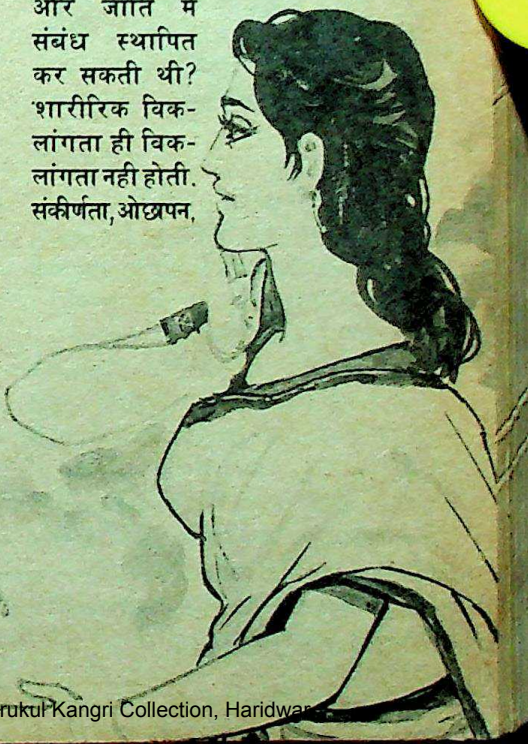 और जाति में
संबंध स्थापित
कर सकती थी?
शारीरिक विक-
लांगता ही विक-
लांगता नही होती.
संकीर्णता, ओछापन,
rukul Kangri Collection, Haridwar